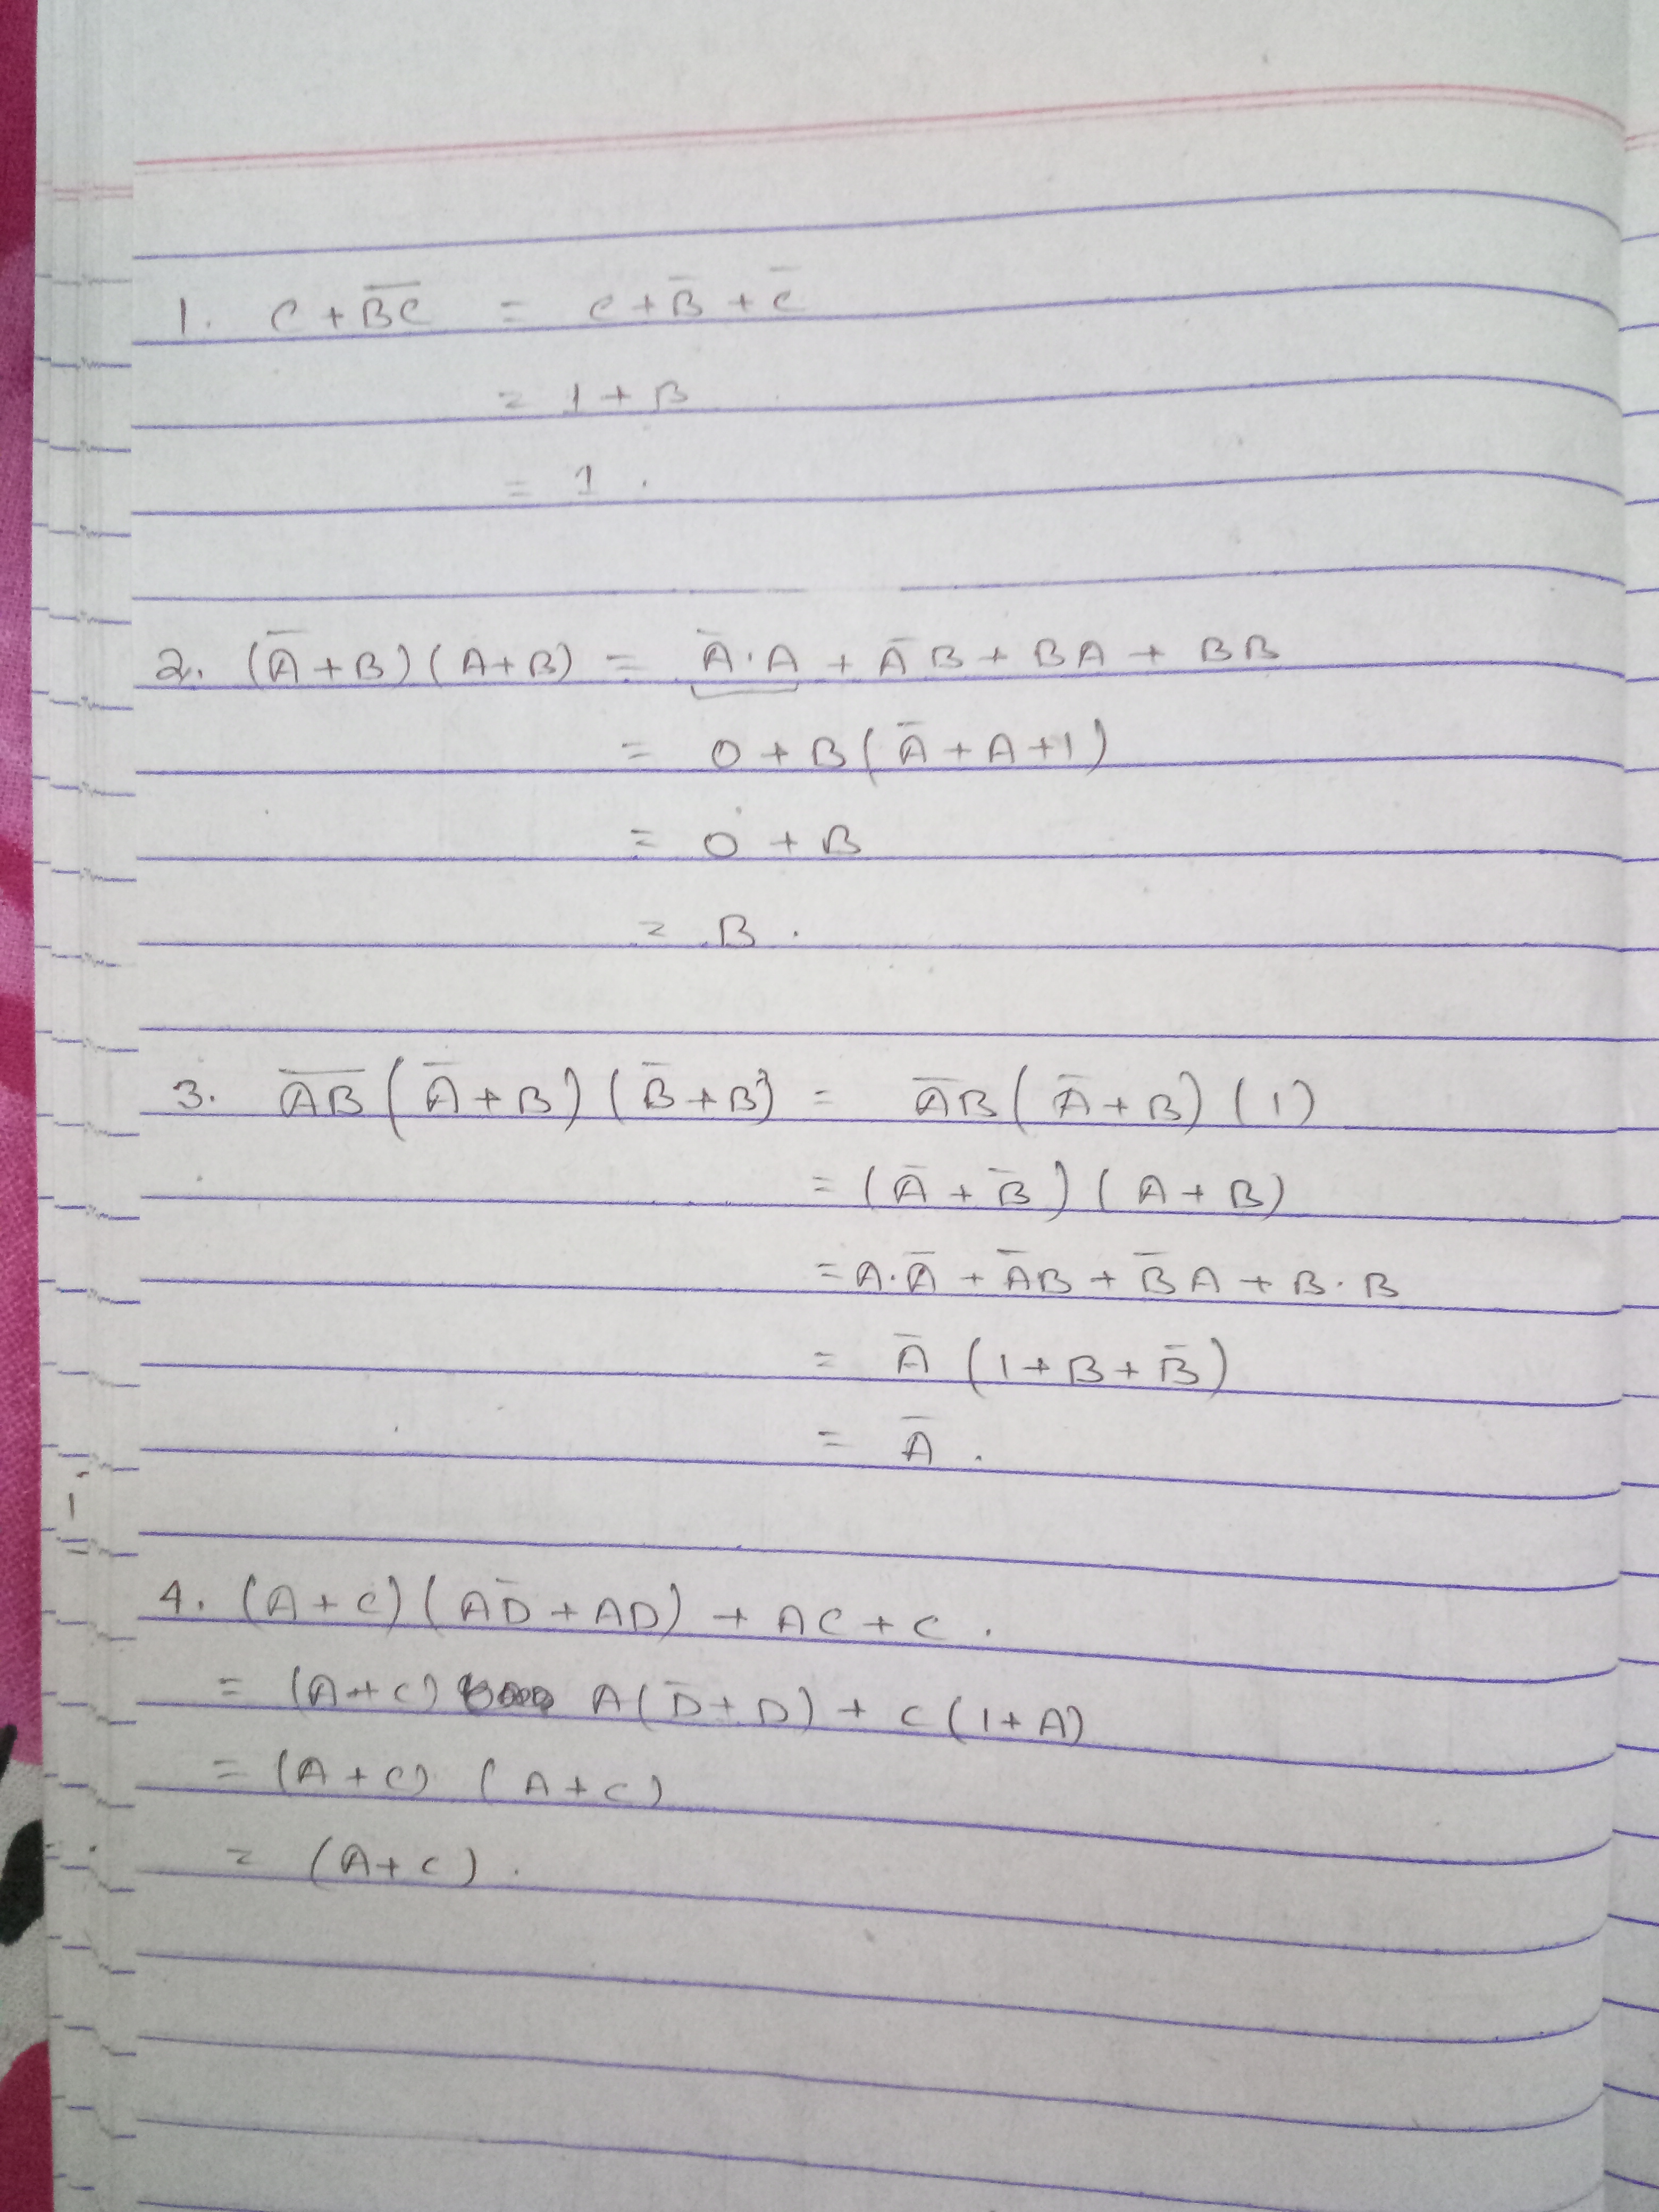 1. C + B̅C̅ = C + B̅ + C̅
= 1 + B
= 1 .
2. (A̅ + B) (A + B) = A̅ · A + A̅ B + B A + B B
= 0 + B ( A̅ + A + 1 )
= 0 + B
= B .
3. A̅B̅ ( A̅ + B ) ( B̅ + B ) = A̅B̅ ( A̅ + B ) ( 1 )
= ( A̅ + B̅ ) ( A + B )
= A · A̅ + A̅ B + B̅ A + B · B
= A̅ ( 1 + B + B̅ )
= A̅ .
4. (A + C) ( A D̅ + A D ) + A C + C .
= (A + C) A ( D̅ + D ) + C ( 1 + A )
= (A + C) ( A + C )
= (A + C) .